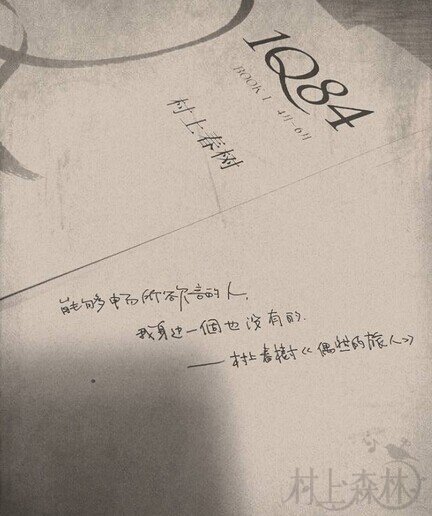 1Q84
BOOK 1 4月-6月
村上春树
能够畅所欲言的人,
我身边一個也没有的.
——村上春樹《偶然的旅人》
村上森林